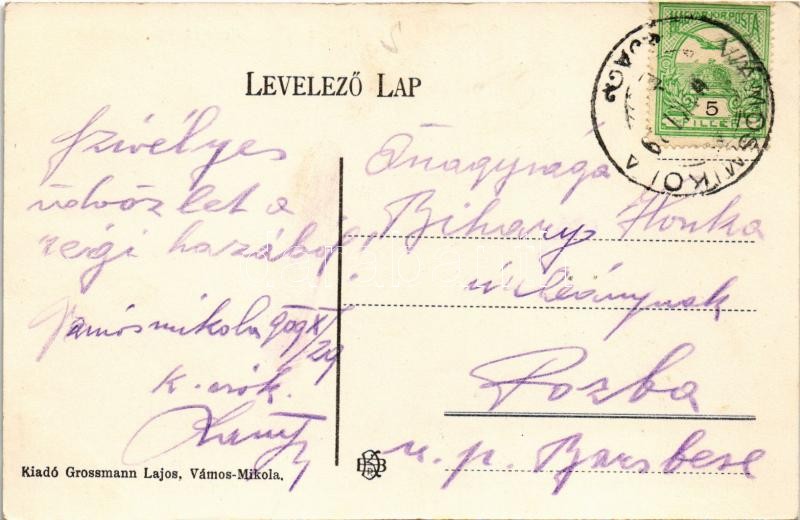 MAGYAR KIR. POSTA
5
FILLÉR
VÁMOSMIKOLA
LEVELEZŐ LAP
Szivélyes
üdvözlet a
régi hazából,
Vámosmikola 909 XI/29
k. csók.
Őnagysága
Bihary Ilonka
urleánynak
Pozba
u. p. Barsbese
Kiadó Grossmann Lajos, Vámos-Mikola.